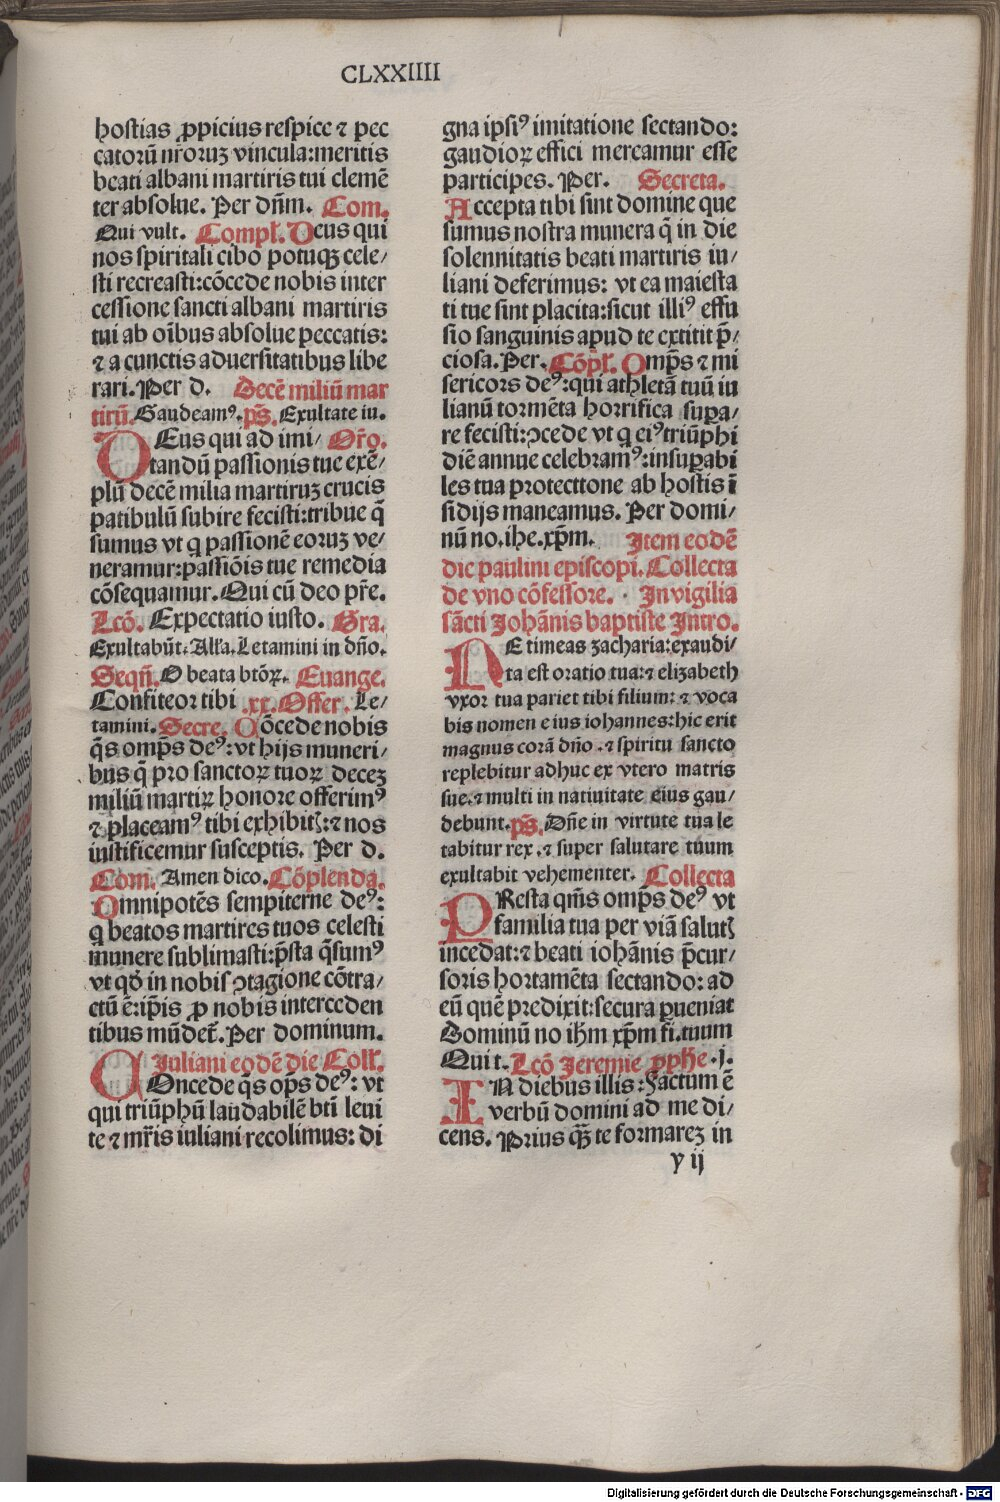 CLXXIIII
hostias ꝓpicius respice ⁊ pec
catorū nr̄oruꝫ vincula:meritis
beati albani martiris tui clemē
ter absolue. Per dn̄m. Com.
Qui vult. Compl̄. Deus qui
nos spiritali cibo potuqꝫ cele/
sti recreasti:cōcede nobis inter
cessione sancti albani martiris
tui ab oībus absolue peccatis:
⁊ a cunctis aduersitatibus libe
rari. Per d. Decē miliū mar
tirū. Gaudeamꝰ. pš. Exultate iu.
DEus qui ad imi/ Or̄o.
tandū passionis tue exē/
plū decē milia martiruꝫ crucis
patibulū subire fecisti:tribue q̄
sumus vt q passionē eoruꝫ ve/
neramur:passiōis tue remedia
cōsequamur. Qui cū deo pr̄e.
Lcō. Expectatio iusto. Gra.
Exultabūt. All̄a. Letamini in dn̄o.
Seqn̄. O beata btōꝝ. Euange.
Confiteor tibi .xx. Offer. Le/
tamini. Secre. Cōcede nobis
q̄s omp̄s deꝰ: vt hijs muneri/
bus q̄ pro sanctoꝝ tuoꝝ deceꝫ
miliū martiꝝ honore offerimꝰ
⁊ placeamꝰ tibi exhibitꝭ:⁊ nos
iustificemur susceptis. Per d.
Com. Amen dico. Cōplenda.
Omnipotēs sempiterne deꝰ:
q beatos martires tuos celesti
munere sublimasti:p̄sta q̄sumꝰ
vt qđ in nobis ꝯtagione cōtra/
ctū ē:ip̄is ꝓ nobis interceden
tibus mūdet̄. Per dominum.
Iuliani eodē die Coll̄.
COncede q̄s op̄s deꝰ: vt
qui triūphū laudabilē bt̄i leui
te ⁊ mr̄is iuliani recolimus: di
gna ipsiꝰ imitatione sectando:
gaudioꝝ effici mereamur esse
participes. Per. Secreta.
Accepta tibi sint domine que
sumus nostra munera q̄ in die
solennitatis beati martiris iu/
liani deferimus: vt ea maiesta
ti tue sint placita:sicut illiꝰ effu
sio sanguinis apud te extitit p̄/
ciosa. Per. Cōpl̄. Omp̄s ⁊ mi
sericors deꝰ:qui athletā tuū iu
lianū tormēta horrifica suꝑa/
re fecisti:ꝯcede vt q eiꝰ triūphi
diē annue celebramꝰ:insuꝑabi
les tua protecttone ab hostis ī
sidijs maneamus. Per domi/
nū no. ihe. xp̄m. Item eodē
die paulini episcopi. Collecta
de vno cōfessore. In vigilia
sācti Johānis baptiste Intro.
NE timeas zacharia:exaudi/
ta est oratio tua:⁊ elizabeth
vxor tua pariet tibi filium: ⁊ voca
bis nomen eius iohannes:hic erit
magnus corā dn̄o .⁊ spiritu sancto
replebitur adhuc ex vtero matris
sue.⁊ multi in natiuitate eius gau/
debunt. pš. Dn̄e in virtute tua le
tabitur rex .⁊ super salutare tuum
exultabit vehementer. Collecta
PResta qm̄s omp̄s deꝰ vt
familia tua per viā salutꝭ
incedat:⁊ beati iohānis p̄cur/
soris hortamēta sectando: ad
eū quē predixit:secura ꝑueniat
Dominū no ih̄m xp̄m fi. tuum
Qui t. Lcō Jeremie ꝓphe .j.
IN diebus illis: Factum ē
verbū domini ad me di/
cens. Prius qꝫ te formareꝫ in
y ij
Digitalisierung gefördert durch die Deutsche Forschungsgemeinschaft - DFG